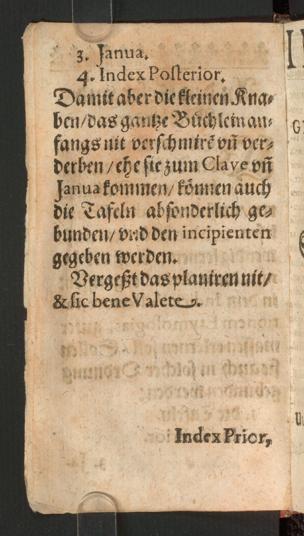 3. Janua.
4. Index Posterior.
Damit aber die kleinen Kna-
ben/das gantze Büchlein an-
fangs nit verschmirẽ vñ ver-
derben/ehe sie zum Clave vñ
Janua kommen/können auch
die Tafeln absonderlich ge-
bunden/vnd den incipienten
gegeben werden.
Vergeßt das planiren nit/
& sic bene Valete.
Index Prior,